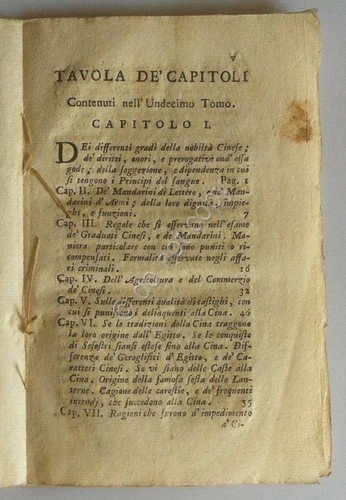 v
TAVOLA DE' CAPITOLI
Contenuti nell'Undecimo Tomo.
CAPITOLO I.
DEi differenti gradi della nobiltà Cinese;
de' diritti, onori, e prerogative ond' essa
gode; della soggezione, e dipendenza in cui
si tengono i Principi del sangue. Pag. 1
Cap. II. De' Mandarini di Lettere, e de' Man-
darini d' Armi; della loro dignità, impie-
ghi, e funzioni. 7
Cap. III. Regole che si osservano nell' esame
de' Graduati Cinesi, e de' Mandarini. Ma-
niera particolare con cui sono puniti o ri-
compensati. Formalità osservate negli affa-
ri criminali. 16
Cap. IV. Dell' Agricoltura e del Commerzio
de' Cinesi. 32
Cap. V. Sulle differenti qualità di castighi, con
cui si puniscono i delinquenti alla Cina. 46
Cap. VI. Se le tradizioni della Cina traggono
la loro origine dall' Egitto. Se le conquiste
di Sesostri siansi estese fino alla Cina. Dif-
ferenza de' Geroglifici d' Egitto, e de' Ca-
ratteri Cinesi. Se vi siano delle Caste alla
Cina. Origine della famosa festa delle Lan-
terne. Cagione delle carestie, e de' frequenti
incendj, che succedono alla Cina. 55
Cap. VII. Ragioni che furono d' impedimento
a' Ci-